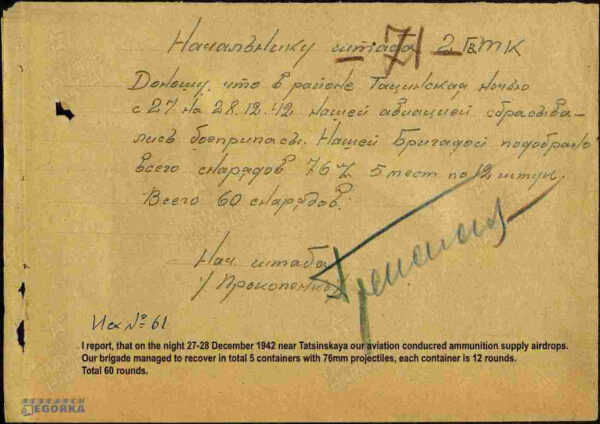 Начальнику штаба 2 Гв. ТК
- 71 -
Доношу, что в районе Тацинская ночью
с 27 на 28.12.42 нашей авиацией сбрасыва-
лись боеприпасы. Нашей Бригадой подобрано
всего снарядов 76 5 мест по 12 штук.
Всего 60 снарядов.
Нач. штаба
Прокопенко
Исх № 61
I report, that on the night 27-28 December 1942 near Tatsinskaya our aviation conducred ammunition supply airdrops.
Our brigade managed to recover in total 5 containers with 76mm projectiles, each container is 12 rounds.
Total 60 rounds.
RESEARCH
EGORKA